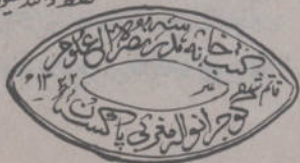 کتب خانہ مدرسہ نصرۃ العلوم
نمبر
قائم شدہ
گوجرانوالہ مغربی پاکستان